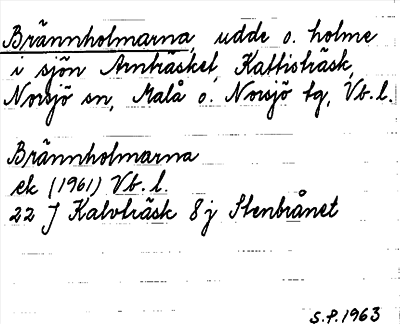 Brännholmarna, udde o. holme
i sjön Arnträsket, Kattisträsk,
Norsjö sn, Malå o. Norsjö tg, Vb. l.
Brännholmarna
ek (1961) Vb. l.
22 J Kalvträsk 8 j Stenbrånet
S.P. 1963